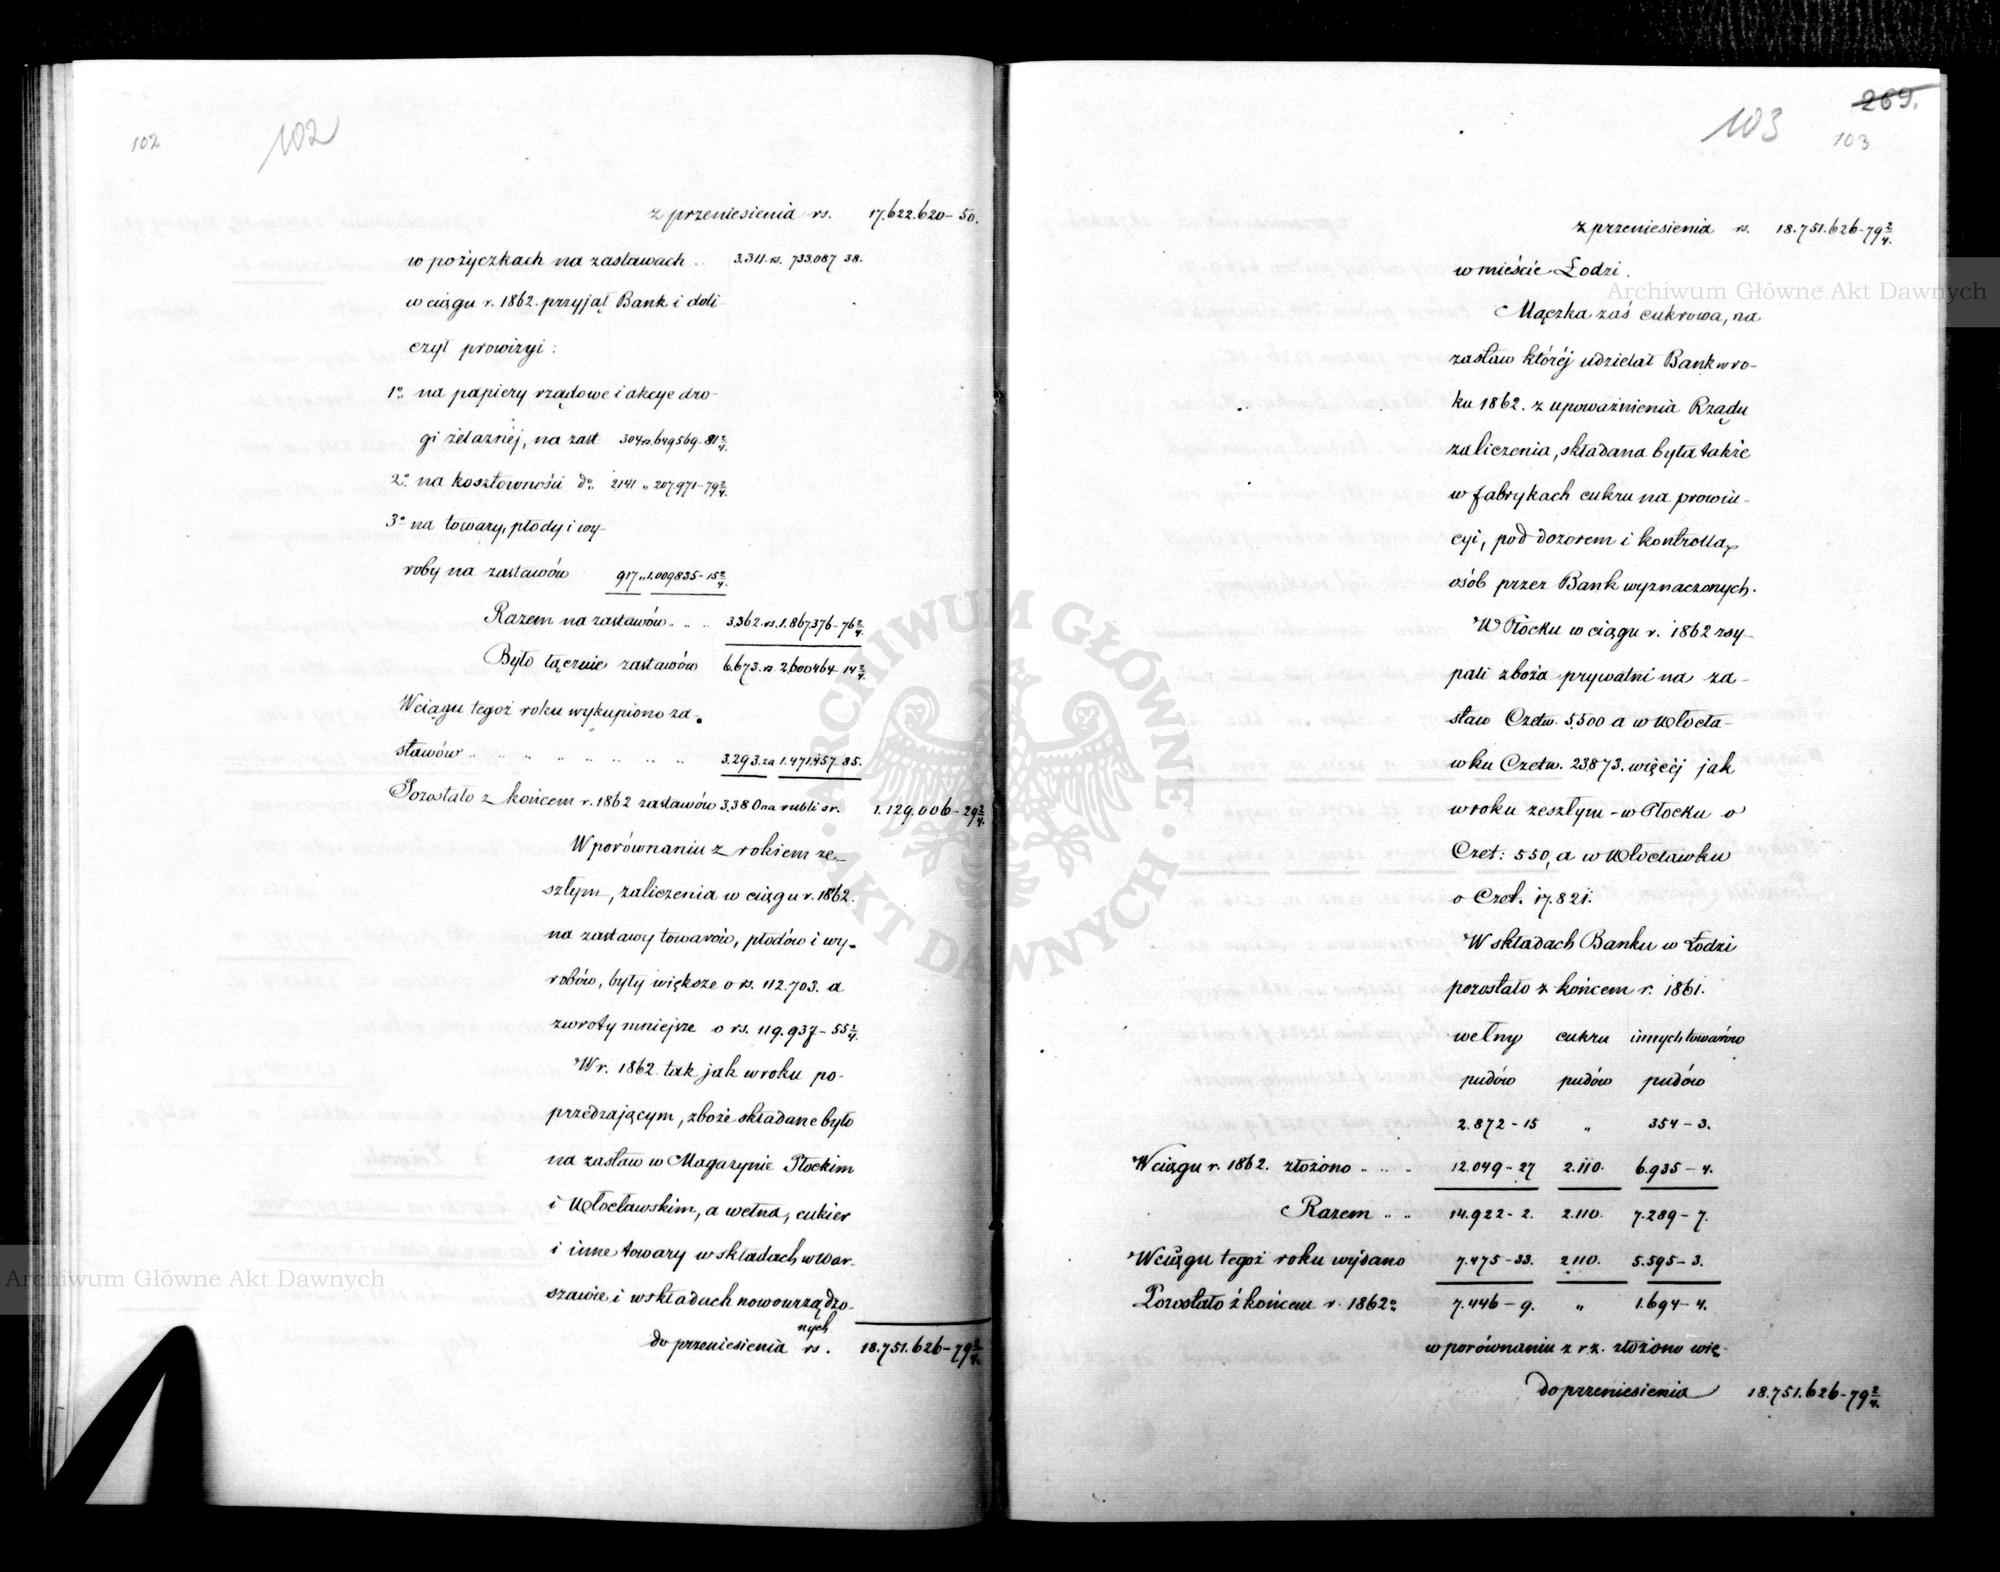 102
102
z przeniesienia rs. 17.622.620-50.
w pożyczkach na zastawach .. 3.311. rs. 733.087 38.
w ciągu r. 1862. przyjął Bank i doli
czył prowizyi:
1o. na papiery rządowe i akcye dro-
gi żelaznéj, na zast. 304 rs. 649569-81 2/4.
2o. na kosztowności do. 2141 „ 207.971-79 2/4.
3o na towary, płody i wy-
roby na zastawów 917 „ 1.009835-15 2/4.
Razem na zastawów .. .. 3.362. rs. 1.867376-76 2/4.
Było łącznie zastawów 6.673. rs. 2.600464-14 2/4.
W ciągu tegoż roku wykupiono za-
stawów .. .. .. .. .. .. .. 3.293. za 1.471.457-85.
Pozostało z końcem r. 1862 zastawów 3.380 na rubli sr. 1.129.006-29 2/4.
W porównaniu z rokiem ze-
szłym, zaliczenia w ciągu r. 1862.
na zastawy towarów, płodów i wy-
robów, były większe o rs. 112.703. a
zwroty mniejsze o rs. 119.937-55 2/4.
W r. 1862. tak jak w roku po-
przedzającym, zboże składane było
na zastaw w Magazynie Płockim
i Włocławskim, a wełna, cukier
i inne towary w składach w War-
szawie i w składach nowourządzo-
nych
do przeniesienia rs. 18.751.626-79 2/4.
269.
103
103
z przeniesienia rs. 18.751.626-79 2/4.
w mieście Łodzi.
Mączka zaś cukrowa, na
zastaw któréj udzielał Bank w ro-
ku 1862. z upoważnienia Rządu
zaliczenia, składana była także
w fabrykach cukru na prowin-
cyi, pod dozorem i kontrollą
osób przez Bank wyznaczonych.
W Płocku w ciągu r. 1862 zsy-
pali zboża prywatni na za-
staw Czetw. 5.500 a w Włocła-
wku Czetw. 23.873. więcéj jak
w roku zeszłym - w Płocku o
Czet: 550, a w Włocławku
o Czet. 17.821.
W składach Banku w Łodzi
pozostało z końcem r. 1861.
wełny cukru innych towarów
pudów pudów pudów
2.872-15 „ 354-3.
W ciągu r. 1862. złożono .. .. .. 12.049-27 2.110. 6.935-4.
Razem .. .. 14.922-2. 2.110. 7.289-7.
W ciągu tegoż roku wydano 7.475-33. 2110. 5.595-3.
Pozostało z końcem r. 1862o. 7.446-9. „ 1.694-4.
w porównaniu z r. z. złożono wię-
do przeniesienia 18.751.626-79 2/4.
Archiwum Główne Akt Dawnych
Archiwum Główne Akt Dawnych
ARCHIWUM GŁÓWNE · AKT DAWNYCH ·